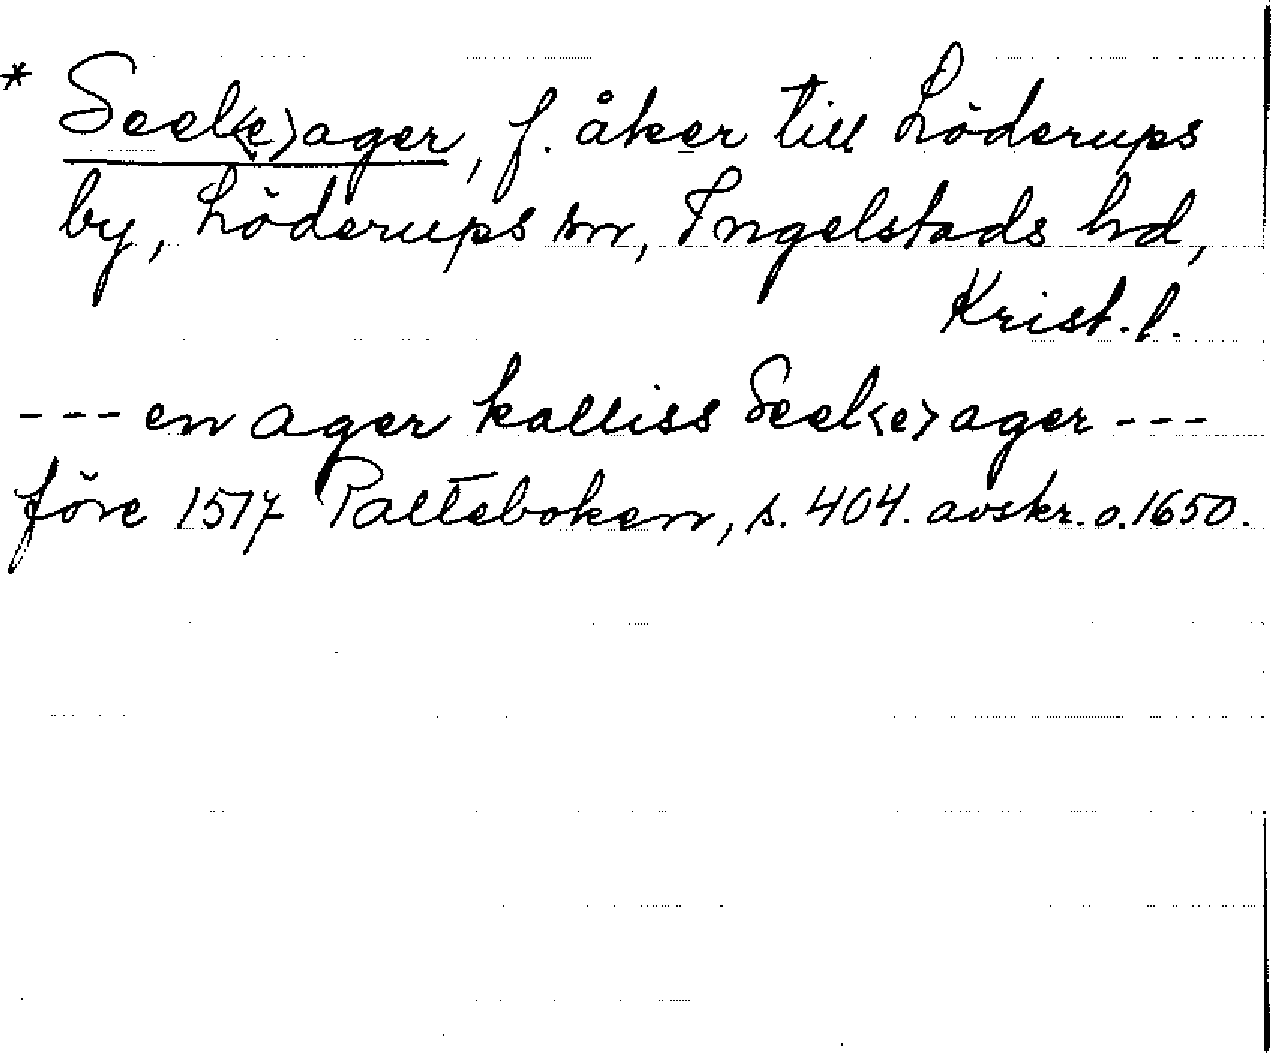 * Seel<e>ager, f. åker till Löderups
by, Löderups sn, Ingelstads hd,
Krist. l.
--- en ager kalliss Seel<e>ager ---
före 1517 Palteboken, s. 404. avskr. o. 1650.